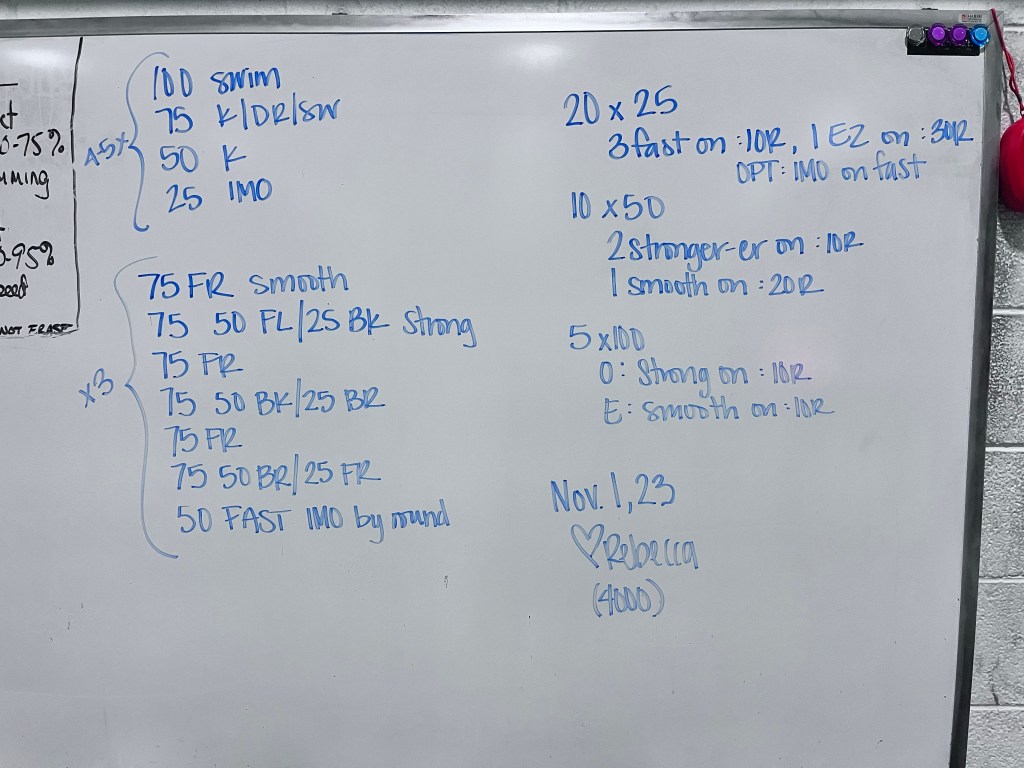 0-75%
MMING
0-95%
peed
NOT ERASE
4-5x
100 swim
75 K/DR/SW
50 K
25 IMO
x3
75 FR smooth
75 50 FL/25 BK Strong
75 FR
75 50 BK/25 BR
75 FR
75 50 BR/25 FR
50 FAST IMO by round
20 x 25
3 fast on :10R, 1 EZ on :30R
OPT: IMO on fast
10 x 50
2 stronger-er on :10R
1 smooth on :20R
5 x100
O: Strong on :10R
E: smooth on :10R
Nov. 1, 23
♡Rebecca
(4000)